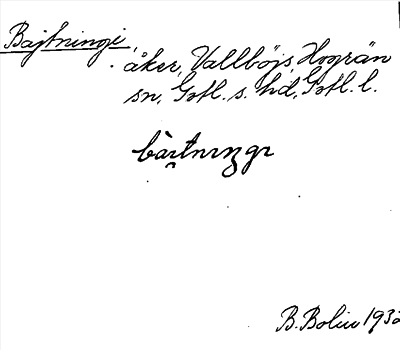 Bajtningi,
åker, Vallböjs Hogrän
sn, Gotl. s. hd, Gotl. l.
bàɪtnɪŋgɪ
B. Bolin 1932